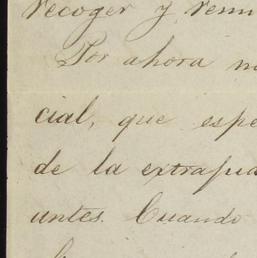 recoger y remi
Por ahora
cial, que espe
de la extraju
untes. Cuando